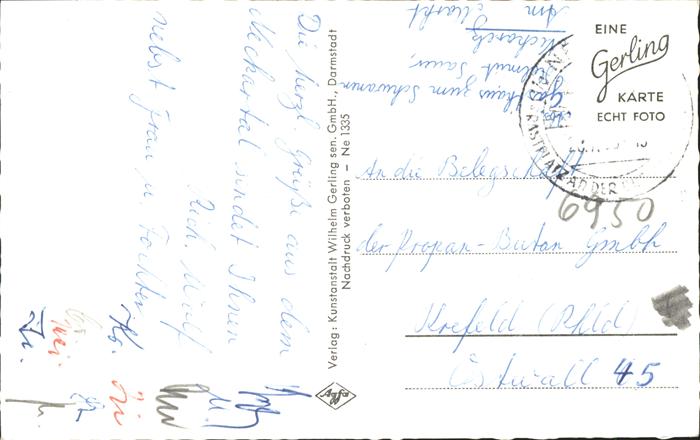 Die herzl. Grüße aus dem
Neckartal sendet Ihnen
Rich. Wolf
nebst Frau u. Tochter
Verlag: Kunstanstalt Wilhelm Gerling sen. GmbH., Darmstadt
Nachdruck verboten – Ne 1335
Agfa
Gasthaus zum Schwanen
Helmut Sauer,
Am Markt
EINE
Gerling
KARTE
ECHT FOTO
RASTPLATZ AN DER
An die Belegschaft
6950
der Propan-Butan GmbH
Krefeld (Rhld)
Ostwall 45